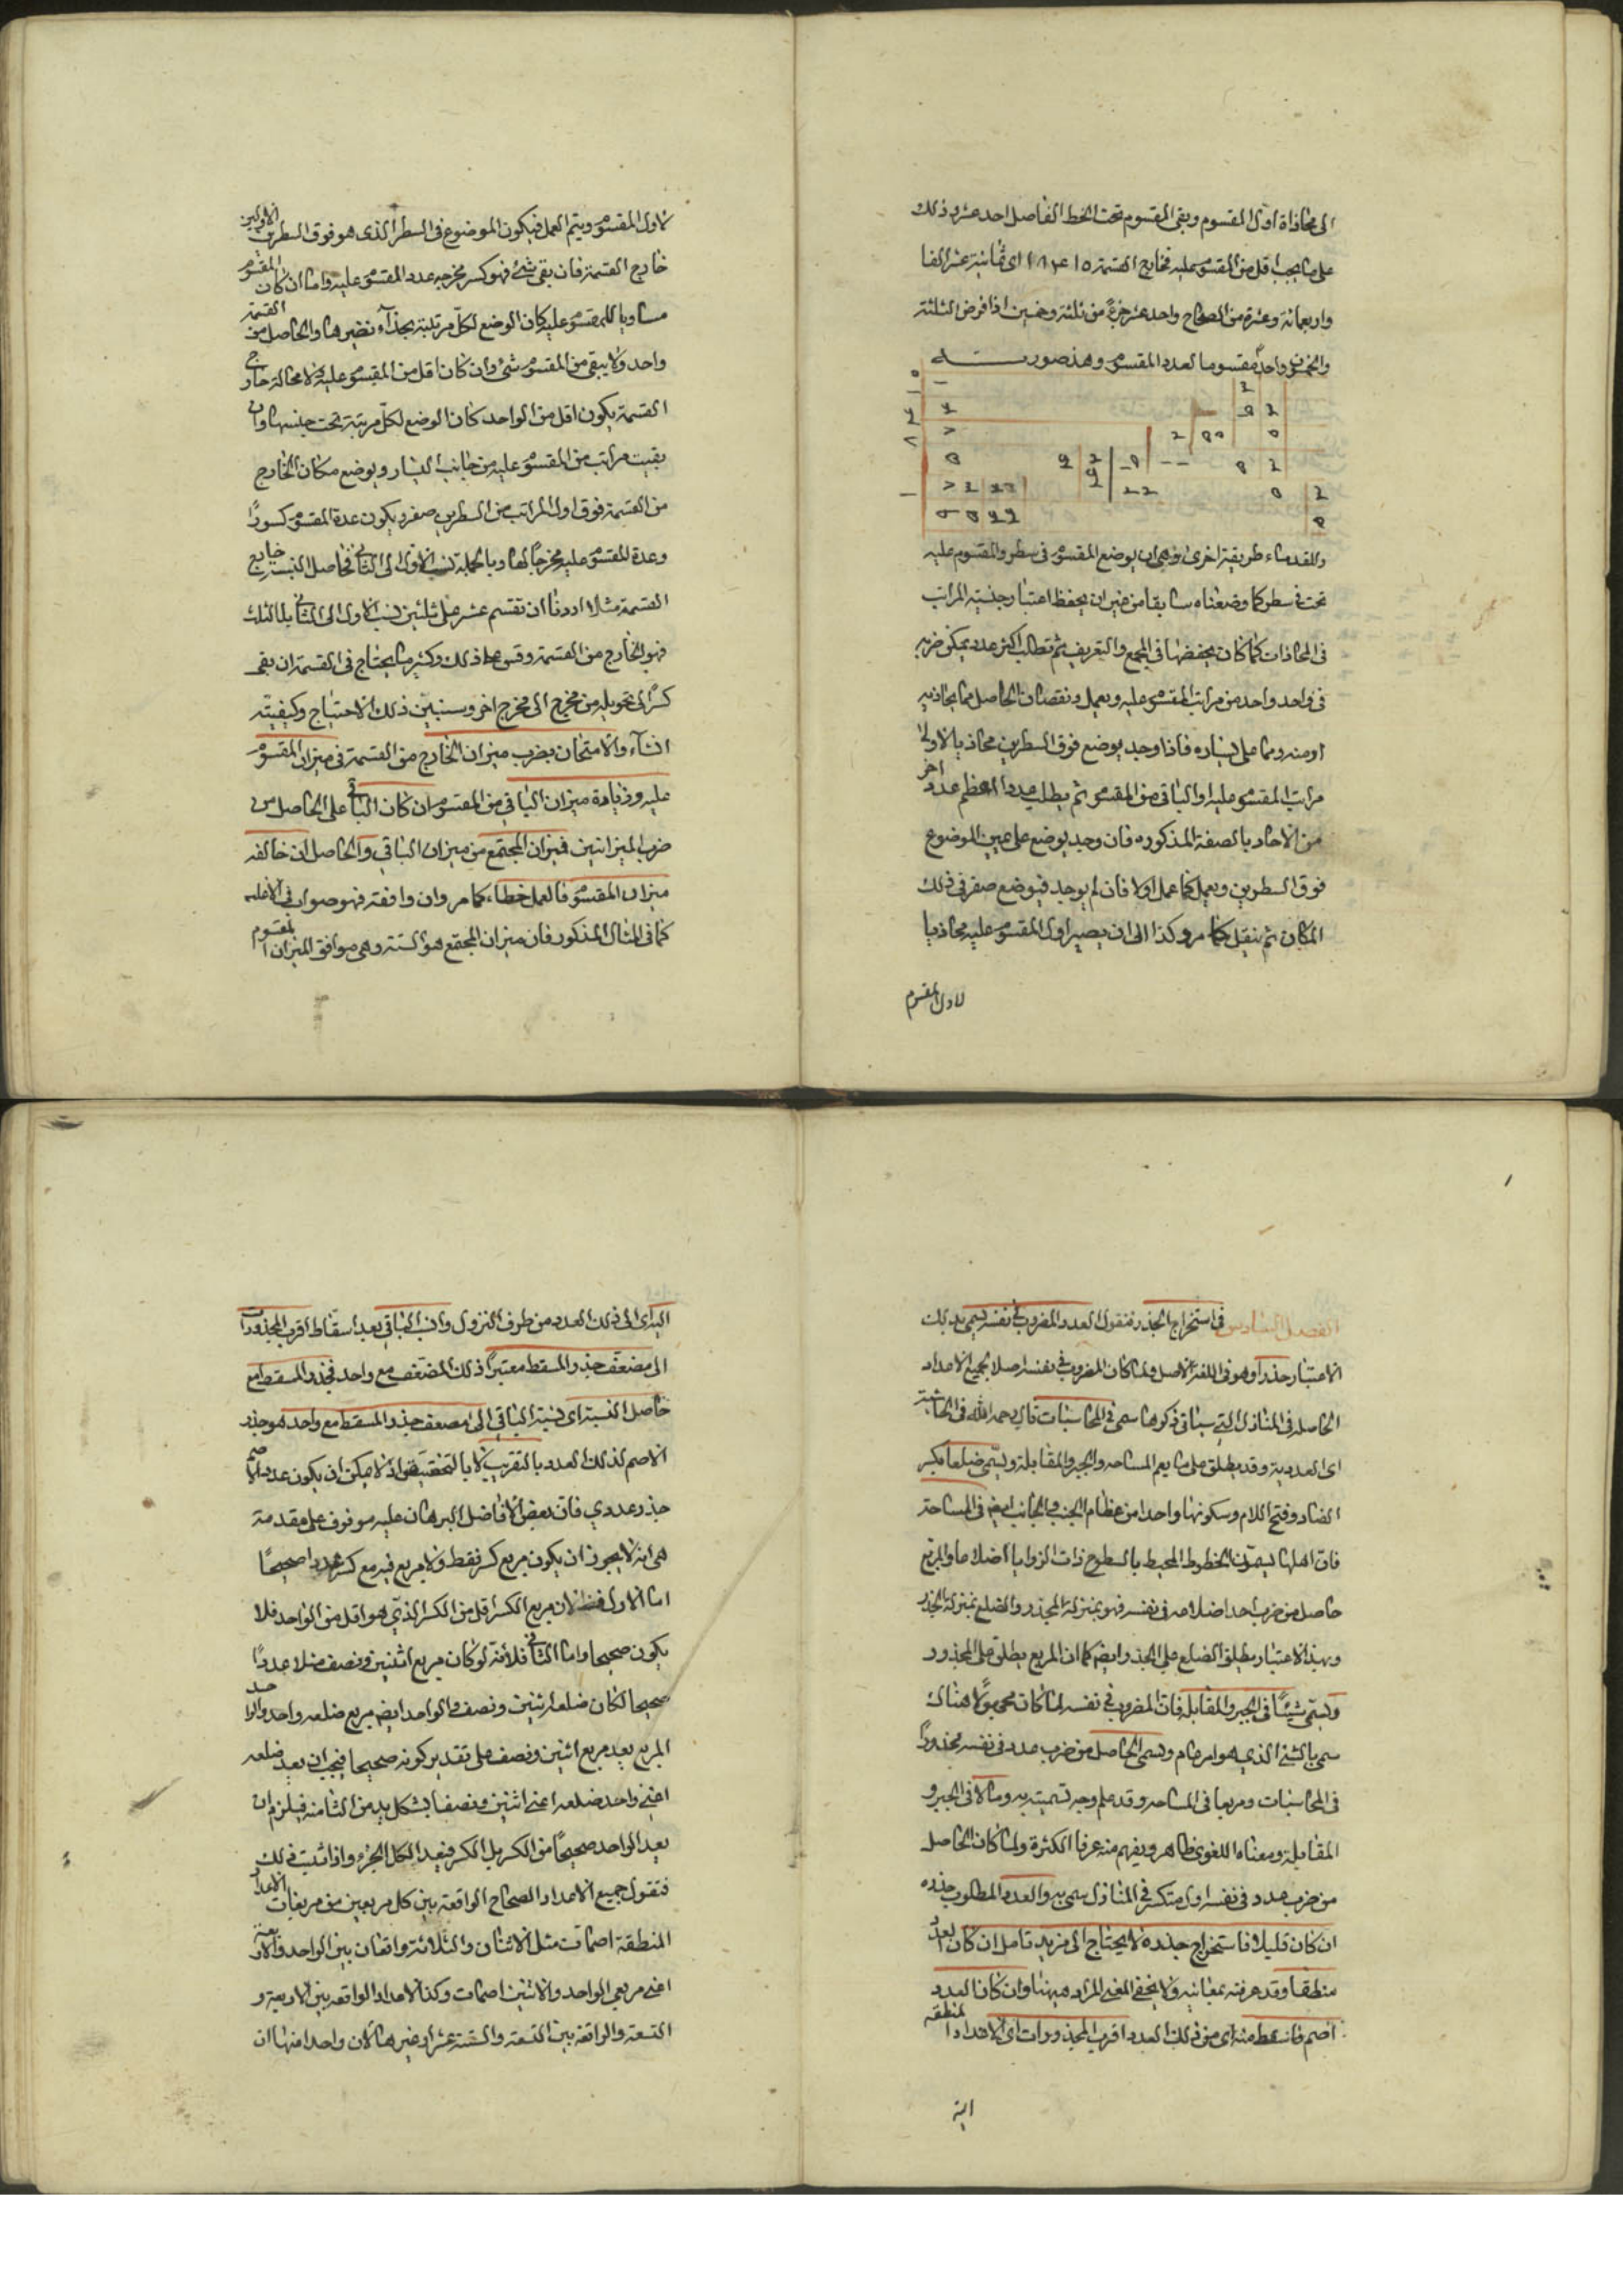 الى محاذاة اول المقسوم وبقى المقسوم تحت الخط الفاصل احد عشر وذلك
على ما يجب اقل من المقسوم عليه فخارج القسمة ١٨٤١٥ اى ثمانية عشر الفا
واربعمائة وعشرة من الصحاح واحد عشر جزءً من ثلثة وخمسين اذا فرض الثلثة
والخمسون واحداً مقسوما لعدد المقسوم وهذه صورته
وللقدماء طريقة اخرى وهى ان يوضع المقسوم فى سطر والمقسوم عليه
تحت فى سطر كما وضعناه سابقا من غير ان يحفظ اعتبار جنسية المراتب
فى المحاذات كما كان يحفظها فى الجمع والتفريق ثم تطلب اكثر عدد يمكن ضربه
فى واحد واحد من مراتب المقسوم عليه ويعمل ونقصان الحاصل مما يحاذيه
او منه ومما على يساره فاذا وجد يوضع فوق السطرين محاذيا لاولى
مراتب المقسوم عليه والباقى من المقسوم ثم يطلب عددا اعظم عدد اخر
من الاحاد بالصفة المذكورة فان وجد يوضع على يمين الموضوع
فوق السطرين ويعمل كما عمل اولا فان لم يوجد فيوضع صفر فى ذلك
المكان ثم ينقل كما مر وكذا الى ان يصير اول المقسوم عليه محاذيا
لاول المقسوم
لاول المقسوم ويتم العمل فيكون الموضوع فى السطر الذى هو فوق السطرين الاولين
خارج القسمة فان بقى شئ فهو كسر مخرجه عدد المقسوم عليه واما ان كان المقسوم
مساويا للمقسوم عليه كان الوضع لكل مرتبة بحذاء نظيرها والحاصل من القسمة
واحد ولا يبقى من المقسوم شئ وان كان اقل من المقسوم عليه ولا محالة خارج
القسمة يكون اقل من الواحد كان الوضع لكل مرتبة تحت جنسها وان
بقيت مراتب من المقسوم عليه من جانب اليسار ويوضع مكان الخارج
من القسمة فوق اول المراتب من السطرين صفر ويكون عدة المقسوم كسورًا
وعدة المقسوم عليه مخرجا لها وبالجملة تنسب الاول الى الثانى فحاصل النسبة خارج
القسمة مثلا اردنا ان نقسم عشر على ثلثين نسب الاول الى الثانى بالثلث
فهو الخارج من القسمة وقس على ذلك وكثير ما يحتاج فى القسمة ان بقى
كسر الى تحويله من مخرج الى مخرج اخر وسنبين ذلك الاحتياج وكيفيته
انشاء والامتحان بضرب ميزان الخارج من القسمة فى ميزان المقسوم
عليه وزيادة ميزان الباقى من المقسوم ان كان الباقى على الحاصل من
ضرب الميزانين فميزان المجتمع من ميزان الباقى والحاصل ان خالف
ميزان المقسوم فالعمل خطاء كما مر وان وافقه فهو صواب فى الاغلب
كما فى المثال المذكور فان ميزان المجتمع هو الستة وهى موافق الميزان المقسوم
الفصل السادس فى استخراج الجذر فنقول العدد المضروب فى نفسه يسمى بذلك
الاعتبار جذرا وهو فى اللغة الاصل ولما كان المضروب فى نفسه اصلا لجميع الاعداد
الحاصلة فى المنازل التى سياتى ذكرها سمى فى المحاسبات قال رحمه الله فى الحاشية
اى العددية وقد يطلق على ما يعم المساحة والجبر والمقابلة ويسمى ضلعا بكسر
الضاد وفتح اللام وسكونها واحدا من عظام الجنب والجانب ايضه فى المساحة
فان اهلها يسمون الخطوط المحيط بالسطوح ذات الزوايا اضلاعا والمربع
حاصل من ضرب احد اضلاعه فى نفسه فهو بمنزلة المجذور والضلع بمنزلة الجذر
وبهذا الاعتبار يطلق الضلع على الجذر وايضه كما ان المربع يطلق على المجذور
ويسمى شيئًا فى الجبر والمقابلة فان المضروب فى نفسه لما كان مجهولا هناك
سمى بالشئ الذى هو امر عام ويسمى الحاصل من ضرب عدد فى نفسه مجذورًا
فى المحاسبات ومربعا فى المساحة وقد علم وجه تسميته به ومالا فى الجبر و
المقابلة ومعناه اللغوى ظاهر ويفهم منه عرفا الكثرة ولما كان الحاصل
من ضرب عدد فى نفسه اول متكثر فى المنازل سمى به والعدد المطلوب جذره
ان كان قليلا فاستخراج جذره لا يحتاج الى مزيد تامل ان كان العدد
منطقا وقد عرفته بمعانيه ولا يخفى المعنى المراد ههنا وان كان العدد
اصم فاسقط منه اى من ذلك العدد اقرب المجذورات اى الاعداد المنطقة
الية
اليه اى الى ذلك العدد من طرف النزول وانسب الباقى بعد اسقاط اقرب المجذورات
الى مضعف جذر المسقط معتبرًا ذلك المضعف مع واحد فجذر المسقط مع
حاصل النسبة اى نسبة الباقى الى مضعف جذر المسقط مع واحد هو جذر
الاصم لذلك العدد بالتقريب لا بالتحقيق اذ لا يمكن ان يكون عدد الاصم
جذر عددي فان بعض الافاضل البرهان عليه موقوف على مقدمة
هى انه لا يجوز ان يكون مربع كسر فقط ولا مربع فيه مع كسر عددا صحيحًا
اما الاول فلان مربع الكسر اقل من الكسر الذى هو اقل من الواحد فلا
يكون صحيحا واما الثانى فلانه لو كان مربع اثنين ونصف مثلا عددًا
صحيحا لكان ضلعه اثنين ونصف والواحد ايضه مربع ضلعه واحد والواحد
المربع يعد مربع اثنين ونصف على تقدير كونه صحيحا فيجب ان يعد ضلعه
اعنى واحد ضلعه اعنى اثنين ونصفا بشكل يد من الثامنة فيلزم ان
يعد الواحد صحيحًا من الكسر بل الكسر فيعد الكل الجزء واذا ثبت ذلك
فنقول جميع الاعداد الصحاح الواقعة بين كل مربعين من مربعات الاعداد
المنطقة اصمات مثل الاثنان والثلاثة واقعان بين الواحد والاربعة
اعنى مربعى الواحد والاثنين اصمات وكذا الاعداد الواقعة بين الاربعة و
التسعة والواقعة بين التسعة والستة عشر وغيرها لان واحدا منها ان